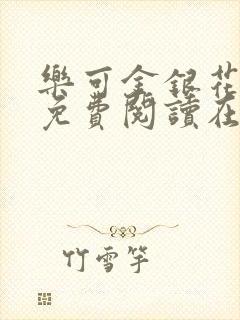 樂可金銀花
免費閱讀在
竹雪竽